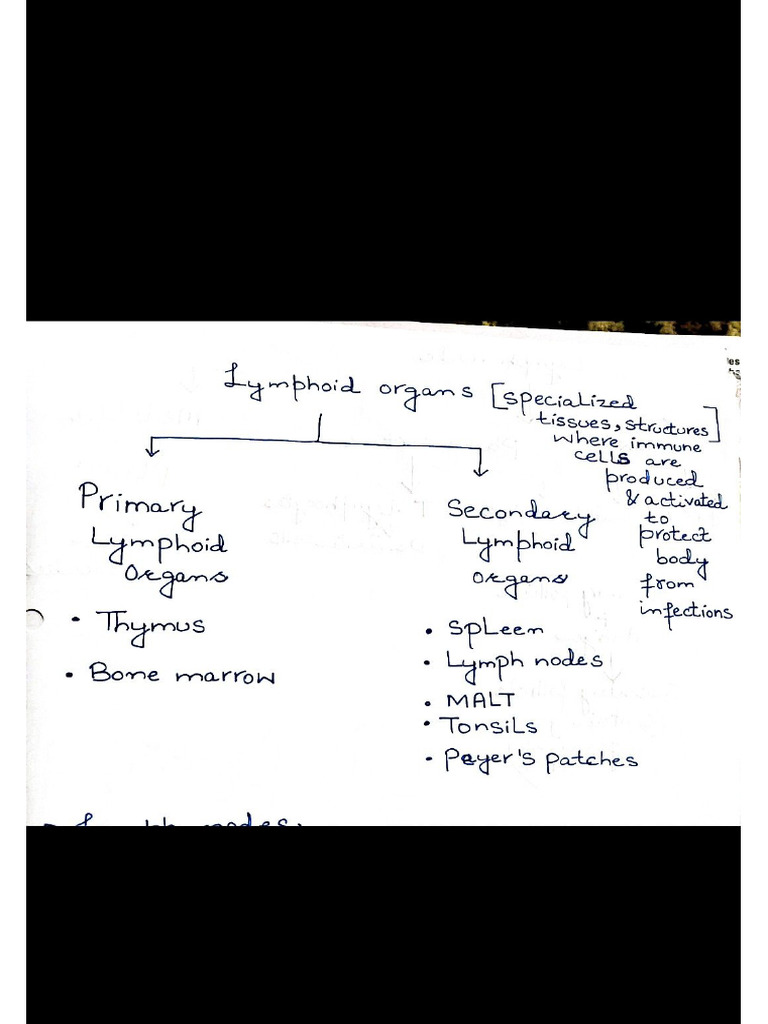 Lymphoid organs [specialized
tissues, structures]
where immune
cells are
produced
& activated
to
protect
body
from
infections
Primary
Lymphoid
Organs
• Thymus
• Bone marrow
Secondary
Lymphoid
organs
• Spleen
• Lymph nodes
• MALT
• Tonsils
• Peyer's patches